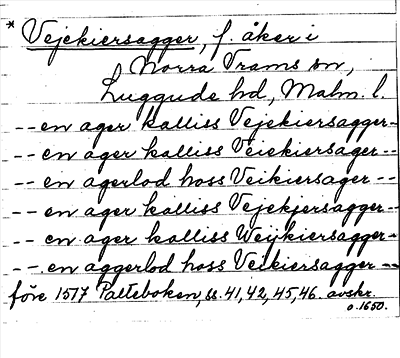 * Vejekiersagger, f. åker i
Norra Vrams sn,
Luggude hd, Malm. l.
-- en ager kalliss Vejekiersagger --
-- en ager kalliss Veiekiersager --
-- en agerlod hoss Veikiersager --
-- en ager kalliss Vejekjersagger --
-- en ager kalliss Weijkiersagger -
-- en aggerlod hoss Veikiersagger --
före 1517 Palteboken, ss. 41, 42, 45, 46. avskr.
o. 1650.